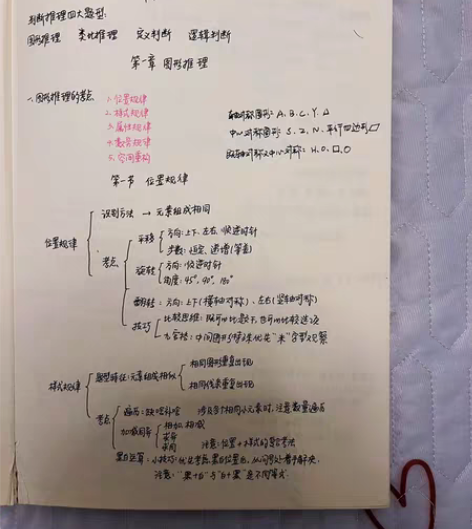 判断推理四大题型:
图形推理 类比推理 定义判断 逻辑判断
第一章 图形推理
一.图形推理的考点
1.位置规律
2.样式规律
3.属性规律
4.数量规律
5.空间重构
轴对称图形: A、B、C、Y、△
中心对称图形: S、Z、N、平行四边形▱
既轴对称又中心对称: H、O、□、○
第一节 位置规律
位置规律
识别方法 → 元素组成相同
考点
平移
方向:上下、左右、顺逆时针
步数:恒定、递增(等差)
旋转
方向:顺逆时针
角度:45°、90°、180°
翻转:方向:上下(横轴对称)、左右(竖轴对称)
技巧
比较思维:既可以比题干,也可以比较选项
九宫格:中间图形特殊优先"米"字型观察
样式规律
题型特征:元素组成相似
相同图形重复出现
相同线条重复出现
考点
遍历:缺啥补啥 涉及多个相同小元素时,注意数量遍历
加减同异
相加、相减
求异
求同
注意:位置+样式的复合考法
黑白运算:小技巧:优先考虑黑白位置,从问号处着手解决.
注意:"黑+白"与"白+黑"是不同等式